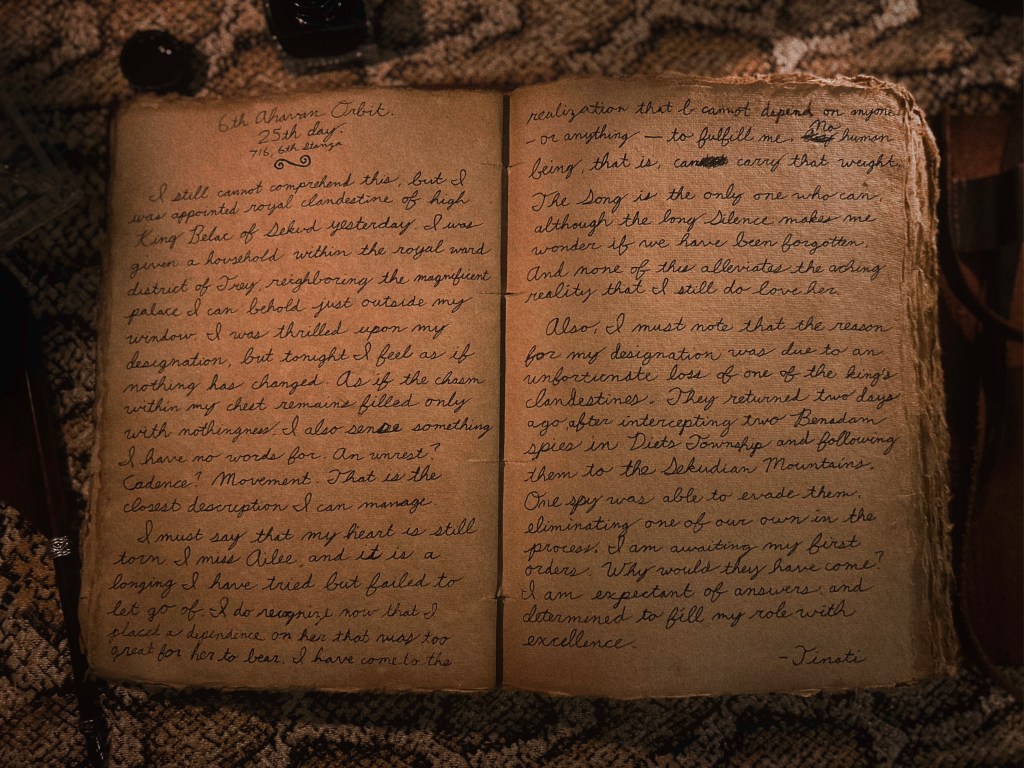 6th Aharan Orbit.
25th day.
716, 6th Stanza
I still cannot comprehend this, but I
was appointed royal clandestine of high
King Belac of Sekud yesterday. I was
given a household within the royal ward
district of Trey, neighboring the magnificent
palace I can behold just outside my
window. I was thrilled upon my
designation, but tonight I feel as if
nothing has changed. As if the chasm
within my chest remains filled only
with nothingness. I also sense something
I have no words for. An unrest?
Cadence? Movement. That is the
closest description I can manage.
I must say that my heart is still
torn. I miss Ailee, and it is a
longing I have tried but failed to
let go of. I do recognize now that I
placed a dependence on her that was too
great for her to bear. I have come to the
realization that I cannot depend on anyone
- or anything - to fulfill me. No human
being, that is, can carry that weight.
The Song is the only one who can,
although the long Silence makes me
wonder if we have been forgotten.
And none of this alleviates the aching
reality that I still do love her.
Also, I must note that the reason
for my designation was due to an
unfortunate loss of one of the king's
clandestines. They returned two days
ago after intercepting two Benadam
spies in Diets Township and following
them to the Sekudian Mountains.
One spy was able to evade them,
eliminating one of our own in the
process. I am awaiting my first
orders. Why would they have come?
I am expectant of answers, and
determined to fill my role with
excellence.
- Tinati